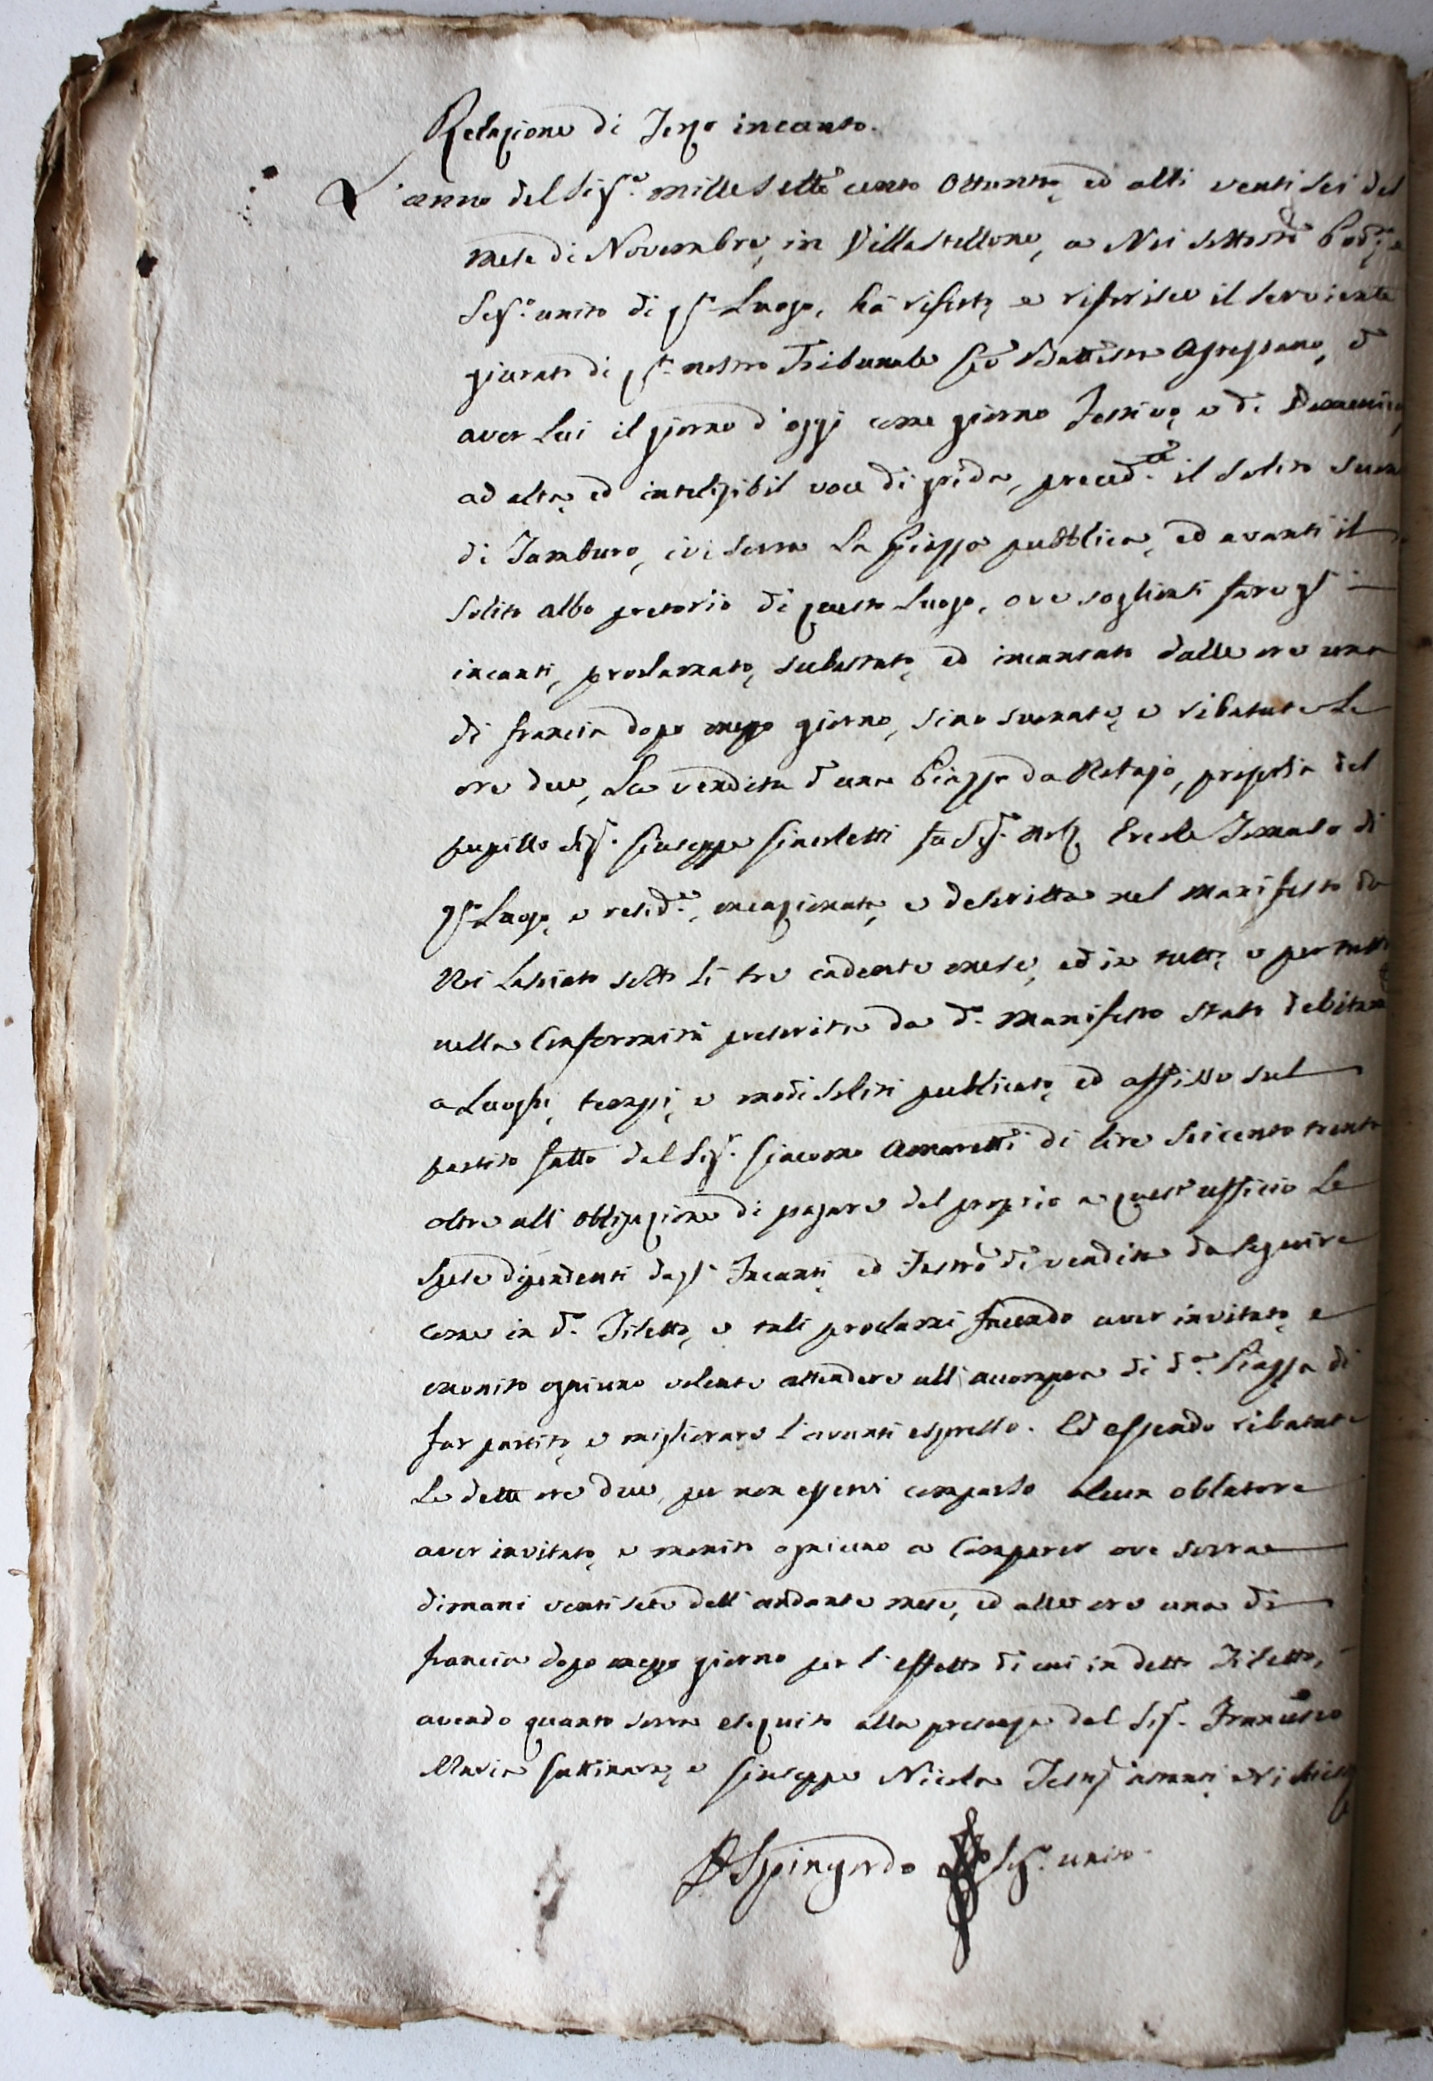 Relazione di Terzo incanto.
L'anno del Sig.e mille sette cento Ottanta, ed alli venti sei del
mese di Novembre, in Villastellone, a Noi sottosto
Seg.o unito di q.to Luogo, ha riferto, e riferisce il serviente
giurato di q.to nostro Tribunale Gio Battista d'
aver Lui il giorno d'oggi come giorno festivo, e di Domenica
ad alta, ed intelligibil voce di grida, preced.te il solito suono
di Tamburo, ivi sovra La Piazza pubblica, ed avanti il
solito albo pretorio di questo Luogo, ove sogliansi fare gl'
incanti, proclamato, subastato, ed incantato dalle ore una
di francia dopo mezzo giorno, sino suonate, e ribatute Le
ore due, La vendita d'una Piazza da propria del
pupillo Sig.r Giuseppe fu Sig.r Ercole Tomaso di
q.to Luogo, e resid.te, menzionata, e descritta nel manifesto da
Noi Lasciato sotto li tre cadente mese, ed in tutto, e per tutto
nella Conformità prescritta da d.o Manifesto stato debitam
a Luoghi, tempi, e modi soliti publicato, ed affisso sul
partito fatto dal Sig.r Giacomo Amaretti di lire seicento trenta
oltre all'obligazione di pagare del proprio a quest'ufficio Le
spese dipendenti dagl'Incanti, ed Instro di vendita da seguire
come in d.o Tiletto, e tali proclami facendo aver invitato, e
monito ogniuno volente attendere all'accompra di d.a Piazza di
far partito, e migliorare l'avanti espresso. Ed essendo ribatute
Le dette ore due, per non essersi comparso alcun oblatore
aver invitato, e monito ogniuno a Comparer ove sovra
dimani venti sette dell'andante mese, ed alle ore una di
francia dopo mezzo giorno per l'effetto di cui in detto Tiletto,
avendo quanto sovra eseguito alla presenza del Sig.r Francesco
Maria Gattinara, e Giuseppe Nicola Test.j astanti, e richiesti
Spingardo Seg.o unito.